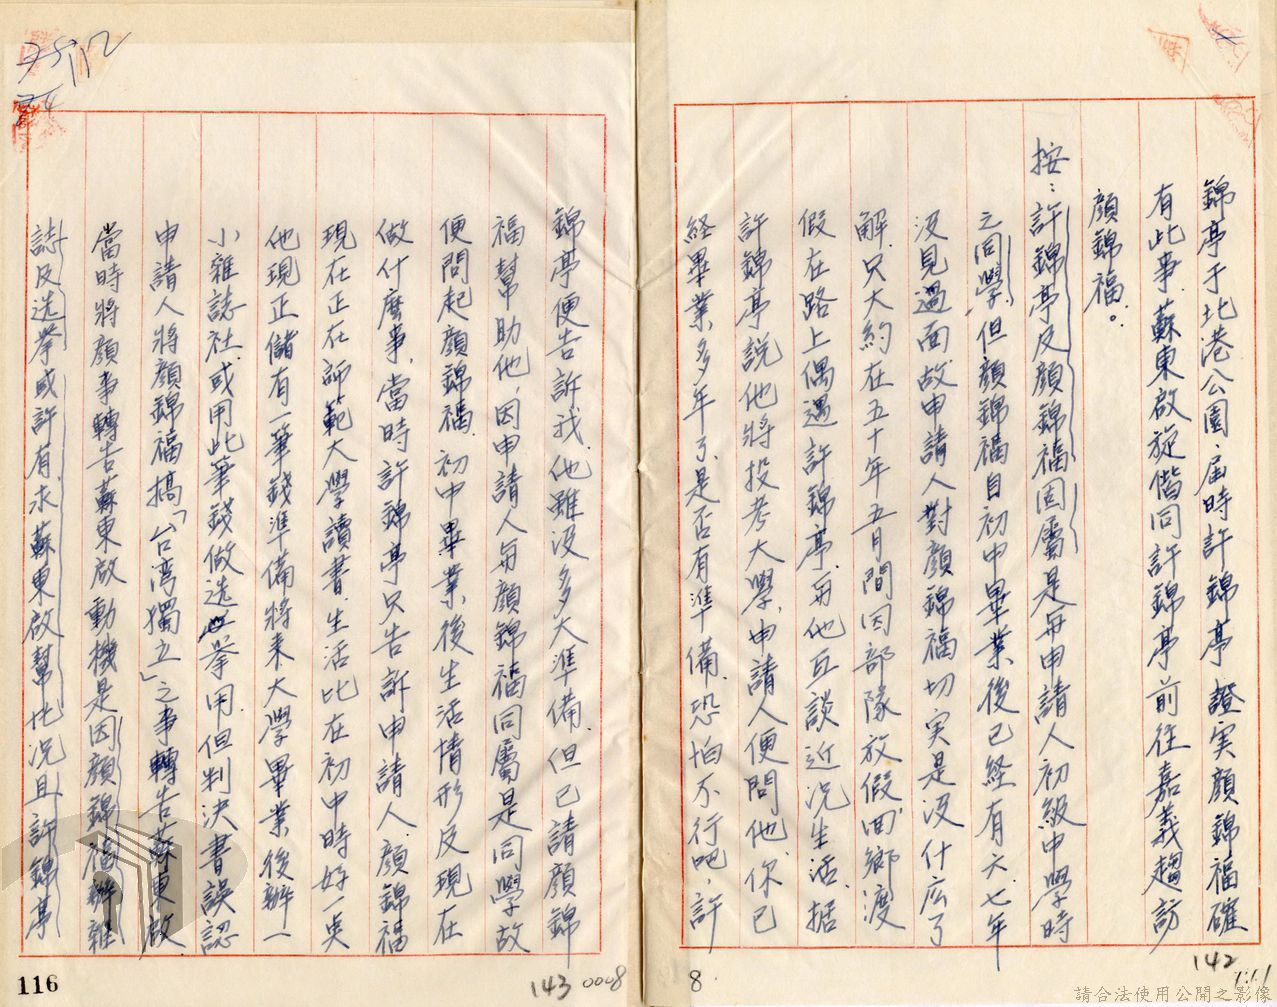 錦亭于北港公園，屆時許錦亭證実顔錦福確
有此事，蘇東啟旋偕同許錦亭前往嘉義趨訪
顔錦福。
按：許錦亭及顔錦福固屬是与申請人初級中學時
之同學，但顔錦福自初中畢業後已経有六、七年
沒見過面故申請人對顔錦福切実是沒什広了
解，只大約在五十年五月間因部隊放假回鄉渡
假在路上偶遇許錦亭，与他互談近況生活，据
許錦亭說他將投考大學，申請人便問他，你已
経畢業多年了是否有準備，恐怕不行吧，許
8
142
錦亭便告訴我，他雖沒多大準備，但已請顔錦
福幫助他，因申請人与顔錦福同屬是同學故
便問起顔錦福，初中畢業後生活情形及現在
做什麼事，當時許錦亭只告訴申請人，顔錦福
現在正在師範大學讀書生活比在初中時好一
他現正儲有一筆錢準備將来大學畢業後辦一
小雜誌社或用此筆錢做选举用，但判決書誤認
申請人將顔錦福搞「台湾獨立」之事轉告蘇東啟
當時將顔事轉告蘇東啟動機是因顔錦福辦雜
誌及选举或許有求蘇東啟幫忙況且許錦亭
116
143
0008
請合法使用公開之影像